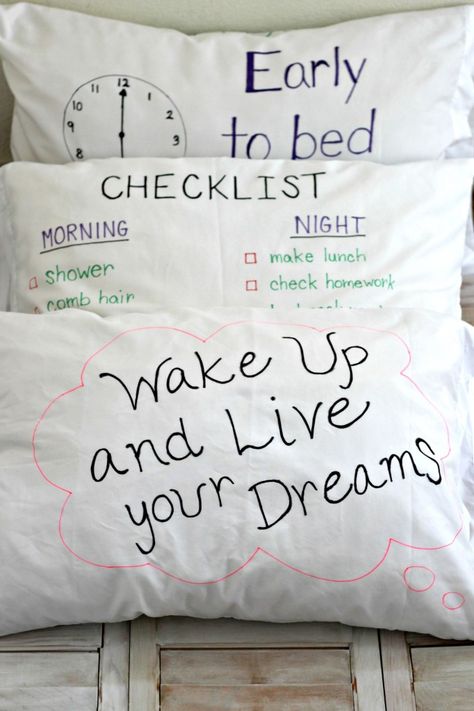 12
11
1
10
2
9
3
Early
to bed
CHECKLIST
MORNING
shower
comb hair
NIGHT
make lunch
check homework
Wake Up
and Live
your Dreams